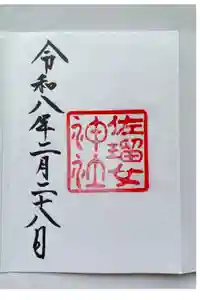 佐瑠女
神社
令和八年二月二十八日